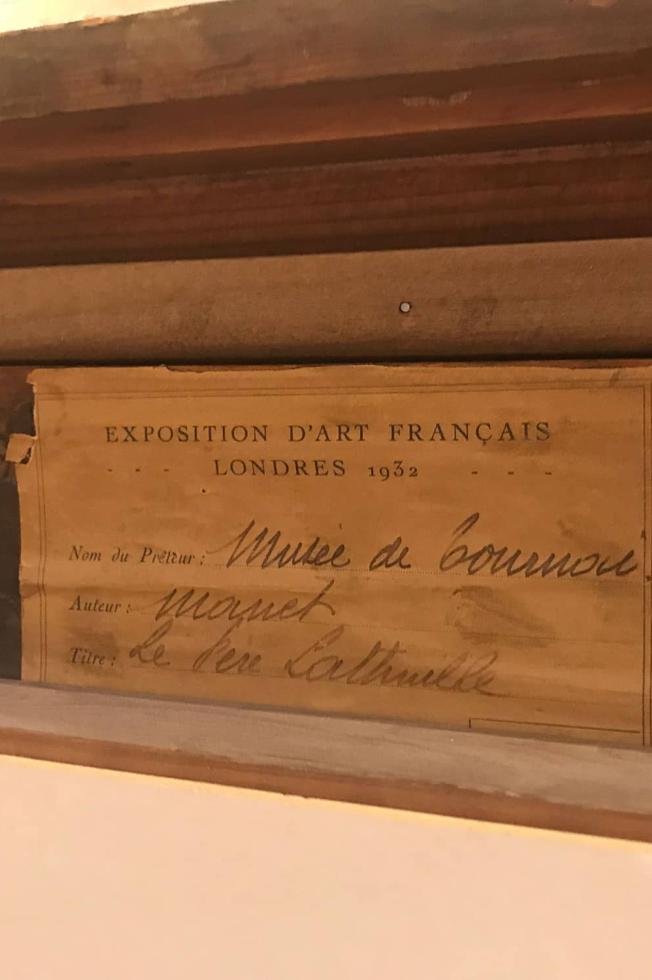 EXPOSITION D'ART FRANÇAIS
- - - LONDRES 1932 - - -
Nom du Prêteur : Musée de Tournai
Auteur : Manet
Titre : Le Père Lathuille